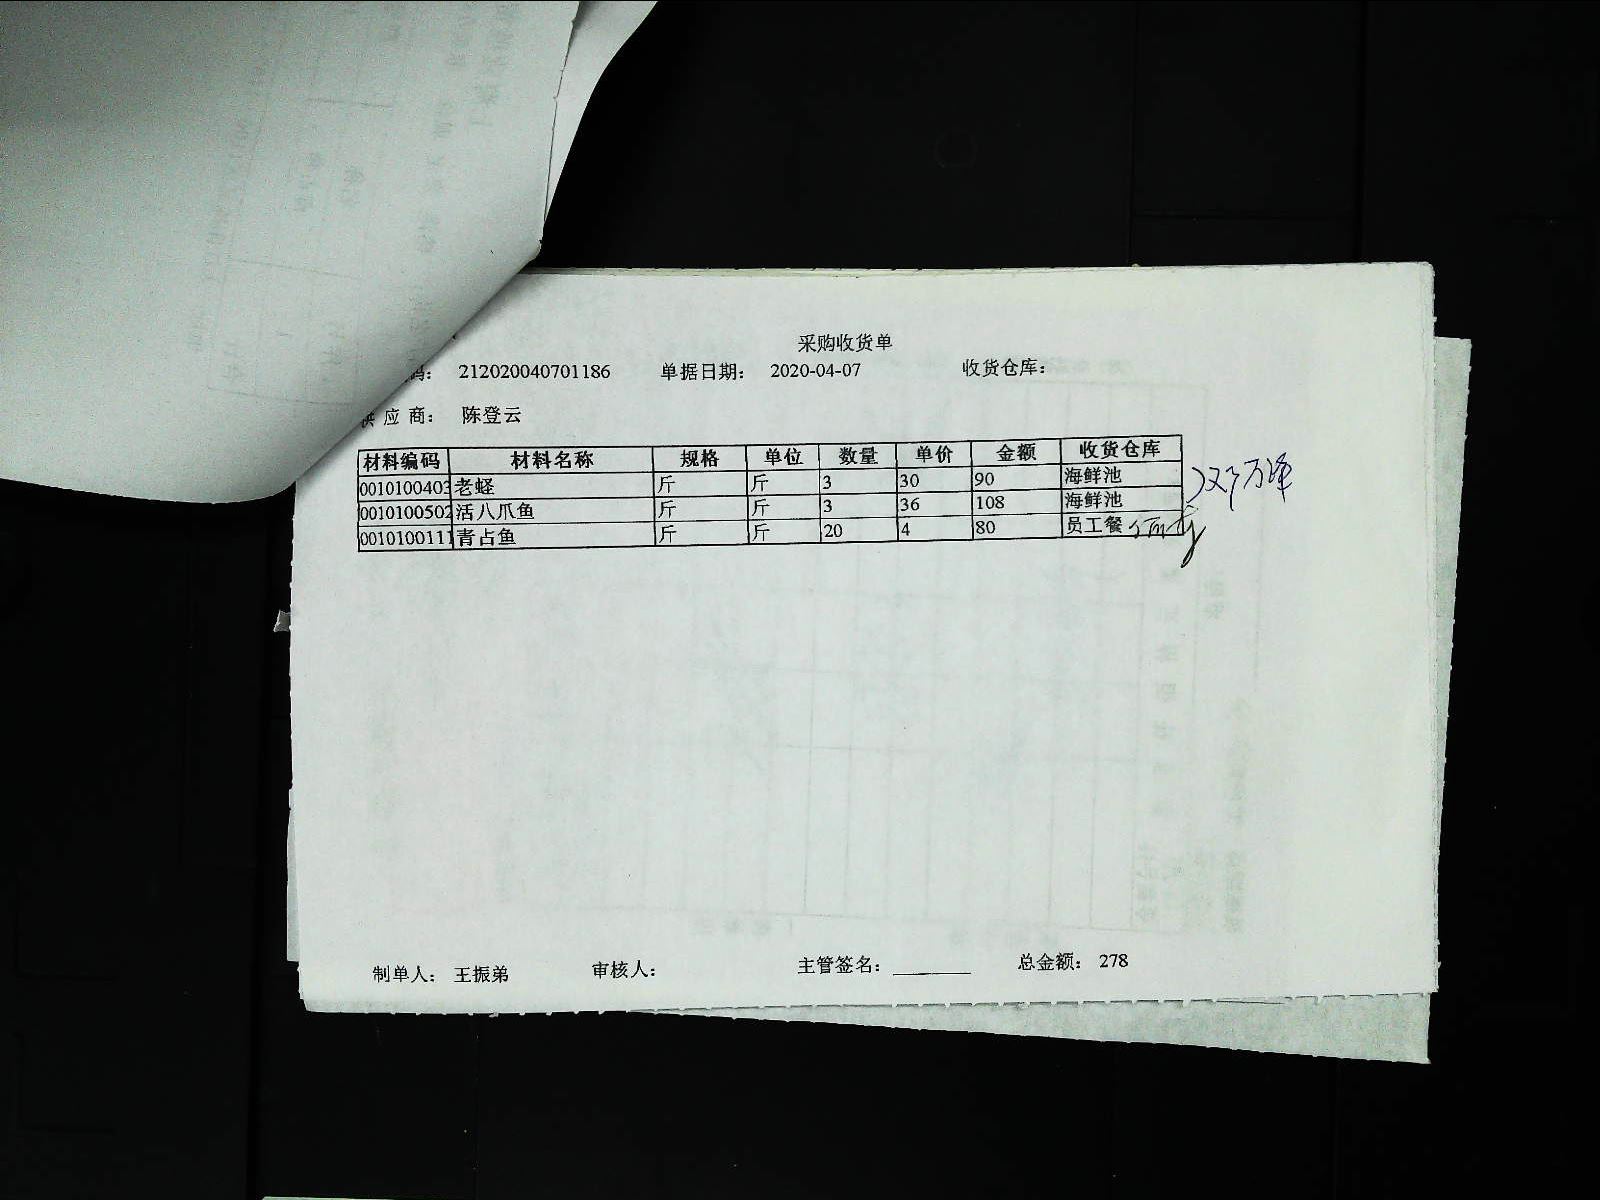 采购收货单
码： 212020040701186 单据日期： 2020-04-07 收货仓库：
供应商： 陈登云
材料编码 材料名称 规格 单位 数量 单价 金额 收货仓库
0010100403 老蛏 斤 斤 3 30 90 海鲜池
0010100502 活八爪鱼 斤 斤 3 36 108 海鲜池
0010100111 青占鱼 斤 斤 20 4 80 员工餐
制单人： 王振弟 审核人： 主管签名： 总金额： 278